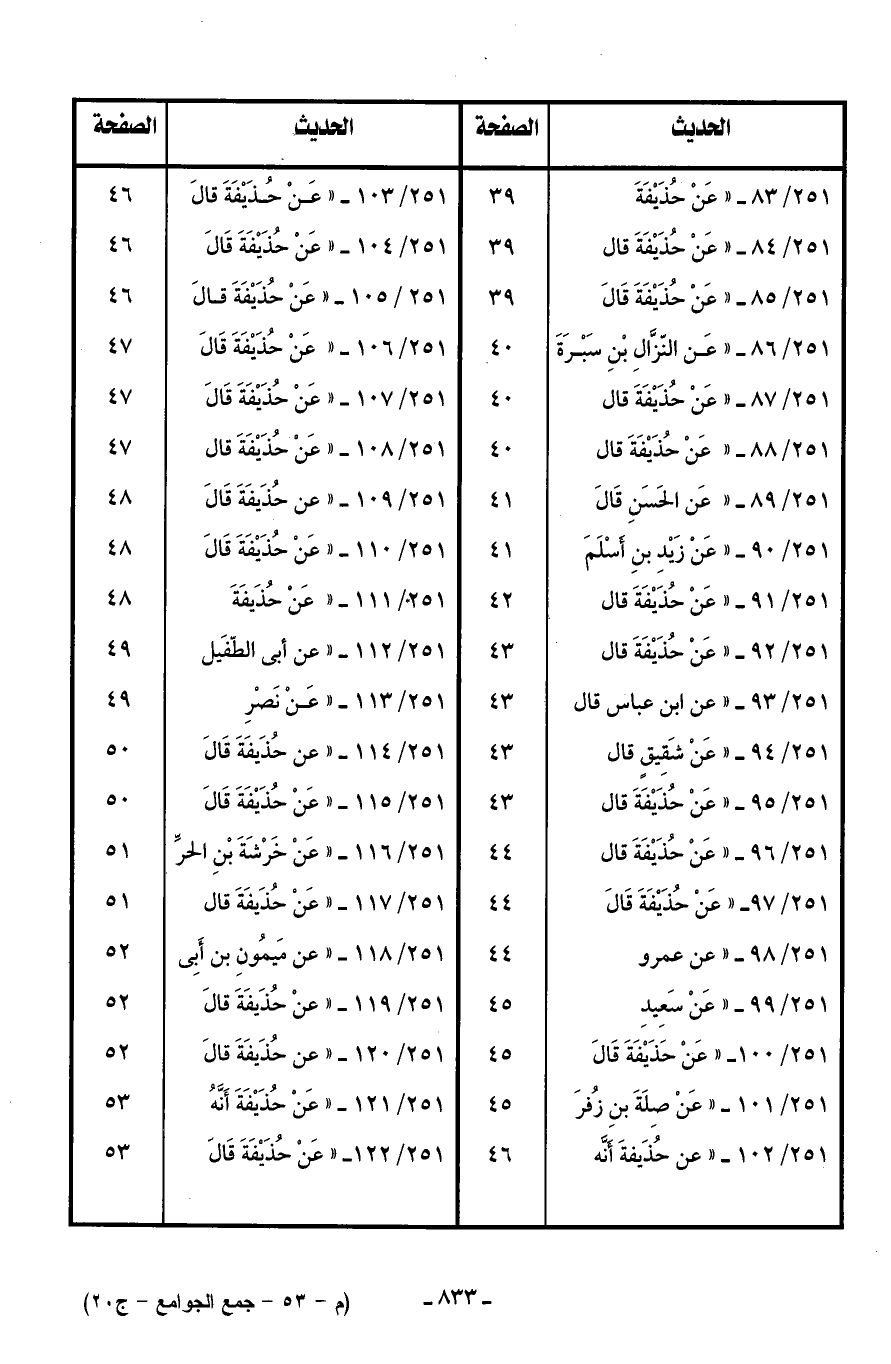 الحديث الصفحة الحديث الصفحة
٨٣/٢٥١ ـ « عَنْ حُذَيْفَةَ ٣٩ ١٠٣/٢٥١ ـ « عَـنْ حُـذَيْفَةَ قالَ ٤٦
٨٤/٢٥١ ـ « عَنْ حُذَيْفَةَ قال ٣٩ ١٠٤/٢٥١ ـ « عَنْ حُذَيْفَةَ قَالَ ٤٦
٨٥/٢٥١ ـ « عَنْ حُذَيْفَةَ قَالَ ٣٩ ١٠٥/٢٥١ ـ « عَنْ حُذَيْفَةَ قـالَ ٤٦
٨٦/٢٥١ ـ « عَـن النّزَّالِ بْنِ سَبْـرَةَ ٤٠ ١٠٦/٢٥١ ـ « عَنْ حُذَيْفَةَ قَالَ ٤٧
٨٧/٢٥١ ـ « عَنْ حُذَيْفَةَ قال ٤٠ ١٠٧/٢٥١ ـ « عَنْ حُذَيْفَةَ قَالَ ٤٧
٨٨/٢٥١ ـ « عَنْ حُذَيْفَةَ قال ٤٠ ١٠٨/٢٥١ ـ « عَنْ حُذَيْفَةَ قال ٤٧
٨٩/٢٥١ ـ « عَن الحَسَنِ قَالَ ٤١ ١٠٩/٢٥١ ـ « عن حُذَيْفَةَ قَالَ ٤٨
٩٠/٢٥١ ـ « عَنْ زَيْدِ بنِ أَسْلَمَ ٤١ ١١٠/٢٥١ ـ « عَنْ حُذَيْفَةَ قَالَ ٤٨
٩١/٢٥١ ـ « عَنْ حُذَيْفَةَ قال ٤٢ ١١١/٢٥١ ـ « عَنْ حُذَيْفَةَ ٤٨
٩٢/٢٥١ ـ « عَنْ حُذَيْفَةَ قال ٤٣ ١١٢/٢٥١ ـ « عن أبى الطّفَيل ٤٩
٩٣/٢٥١ ـ « عن ابن عباس قال ٤٣ ١١٣/٢٥١ ـ « عَـنْ نَصْرِ ٤٩
٩٤/٢٥١ ـ « عَنْ شَقِيقٍ قال ٤٣ ١١٤/٢٥١ ـ « عن حُذَيْفَةَ قَالَ ٥٠
٩٥/٢٥١ ـ « عَنْ حُذَيْفَةَ قال ٤٣ ١١٥/٢٥١ ـ « عَنْ حُذَيْفَةَ قَالَ ٥٠
٩٦/٢٥١ ـ « عَنْ حُذَيْفَةَ قال ٤٤ ١١٦/٢٥١ ـ « عَنْ خَرْشَةَ بْنِ الحرِّ ٥١
٩٧/٢٥١ـ « عَنْ حُذَيْفَةَ قَالَ ٤٤ ١١٧/٢٥١ ـ « عَنْ حُذَيفَةَ قال ٥١
٩٨/٢٥١ ـ « عن عمرو ٤٤ ١١٨/٢٥١ ـ « عن مَيمُونِ بن أَبِى ٥٢
٩٩/٢٥١ ـ « عَنْ سَعِيدِ ٤٥ ١١٩/٢٥١ ـ « عنْ حُذَيفَةَ قالَ ٥٢
١٠٠/٢٥١ـ « عَنْ حَذَيْفَةَ قَالَ ٤٥ ١٢٠/٢٥١ ـ « عن حُذَيفَةَ قالَ ٥٢
١٠١/٢٥١ ـ « عَنْ صِلَةَ بنِ زُفُرَ ٤٥ ١٢١/٢٥١ ـ « عَنْ حُذَيْفَةَ أَنَّهُ ٥٣
١٠٢/٢٥١ ـ « عن حُذَيفةَ أنَّه ٤٦ ١٢٢/٢٥١ـ « عَنْ حُذَيْفَةَ قَالَ ٥٣
ـ ٨٣٣ ـ (م - ٥٣ - جمع الجوامع - ج٢٠)